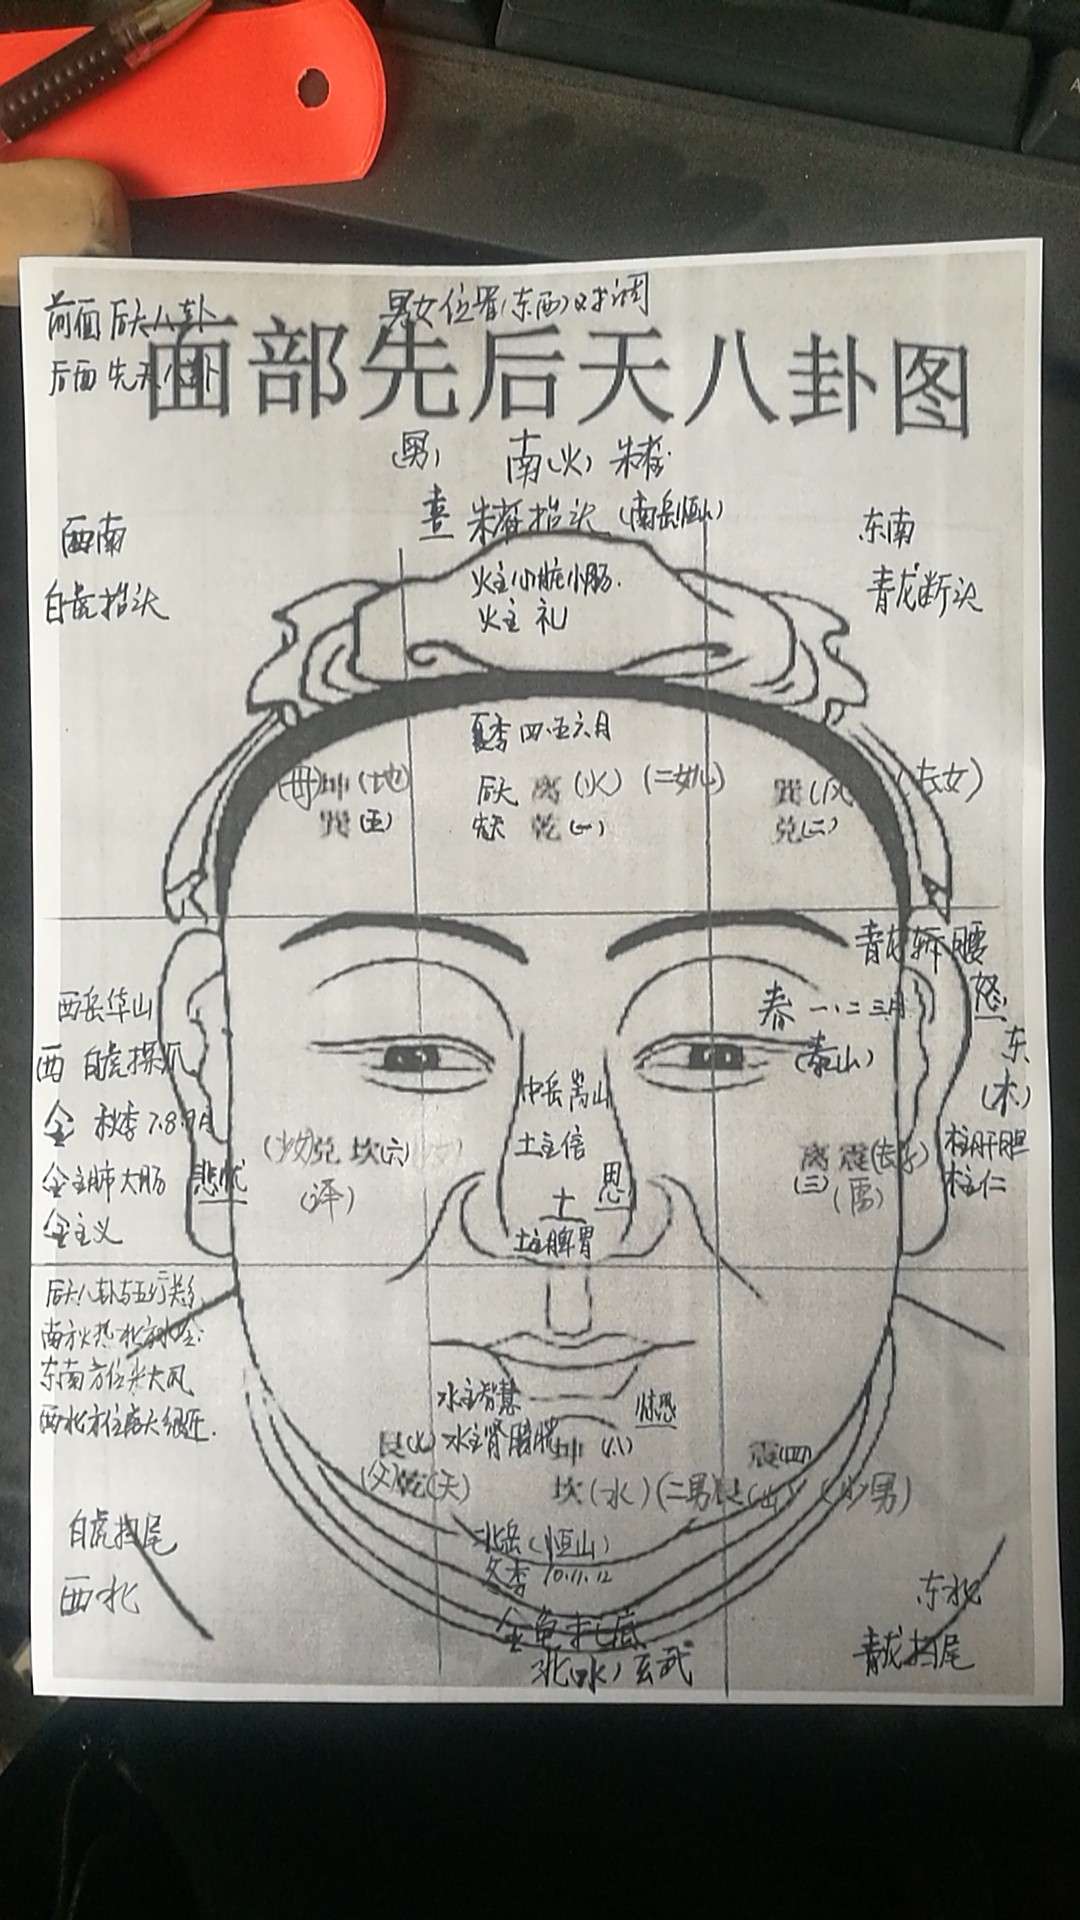 前面 后天八卦
男女位置(东西)对调
后面 先天八卦
面部先后天八卦图
(男) 南(火) 朱雀
喜 朱雀抬头 (南岳恒山)
西南
东南
白虎抬头
青龙断头
火主心脏小肠.
火主 礼
夏季 四.五六月
(母)坤(地)
后天 离(火)(二女)
巽(风)
巽(五)
先天 乾(一)
兑(二)
青龙斩腰
怒
西岳华山
春 一、二三月
西 白虎探爪
(泰山)
东
(木)
中岳嵩山
金 秋季 7.8.9月
土主信
(少女)兑 坎(六)
离 震(长子)
(三)
金主肺大肠 悲忧
(泽)
土 思
金主义
土主脾胃
后天八卦与五行关系
南方火热 北方水
东南方位来大风
水主智慧
惊恐
水主肾膀胱
艮(七)
坤(八)
震(四)
(父)乾(天)
坎(水)(二男)艮(山)(少男)
北岳(恒山)
冬季 10.11.12
白虎扫尾
西北
东北
金龟托底
青龙扫尾
北(水)玄武